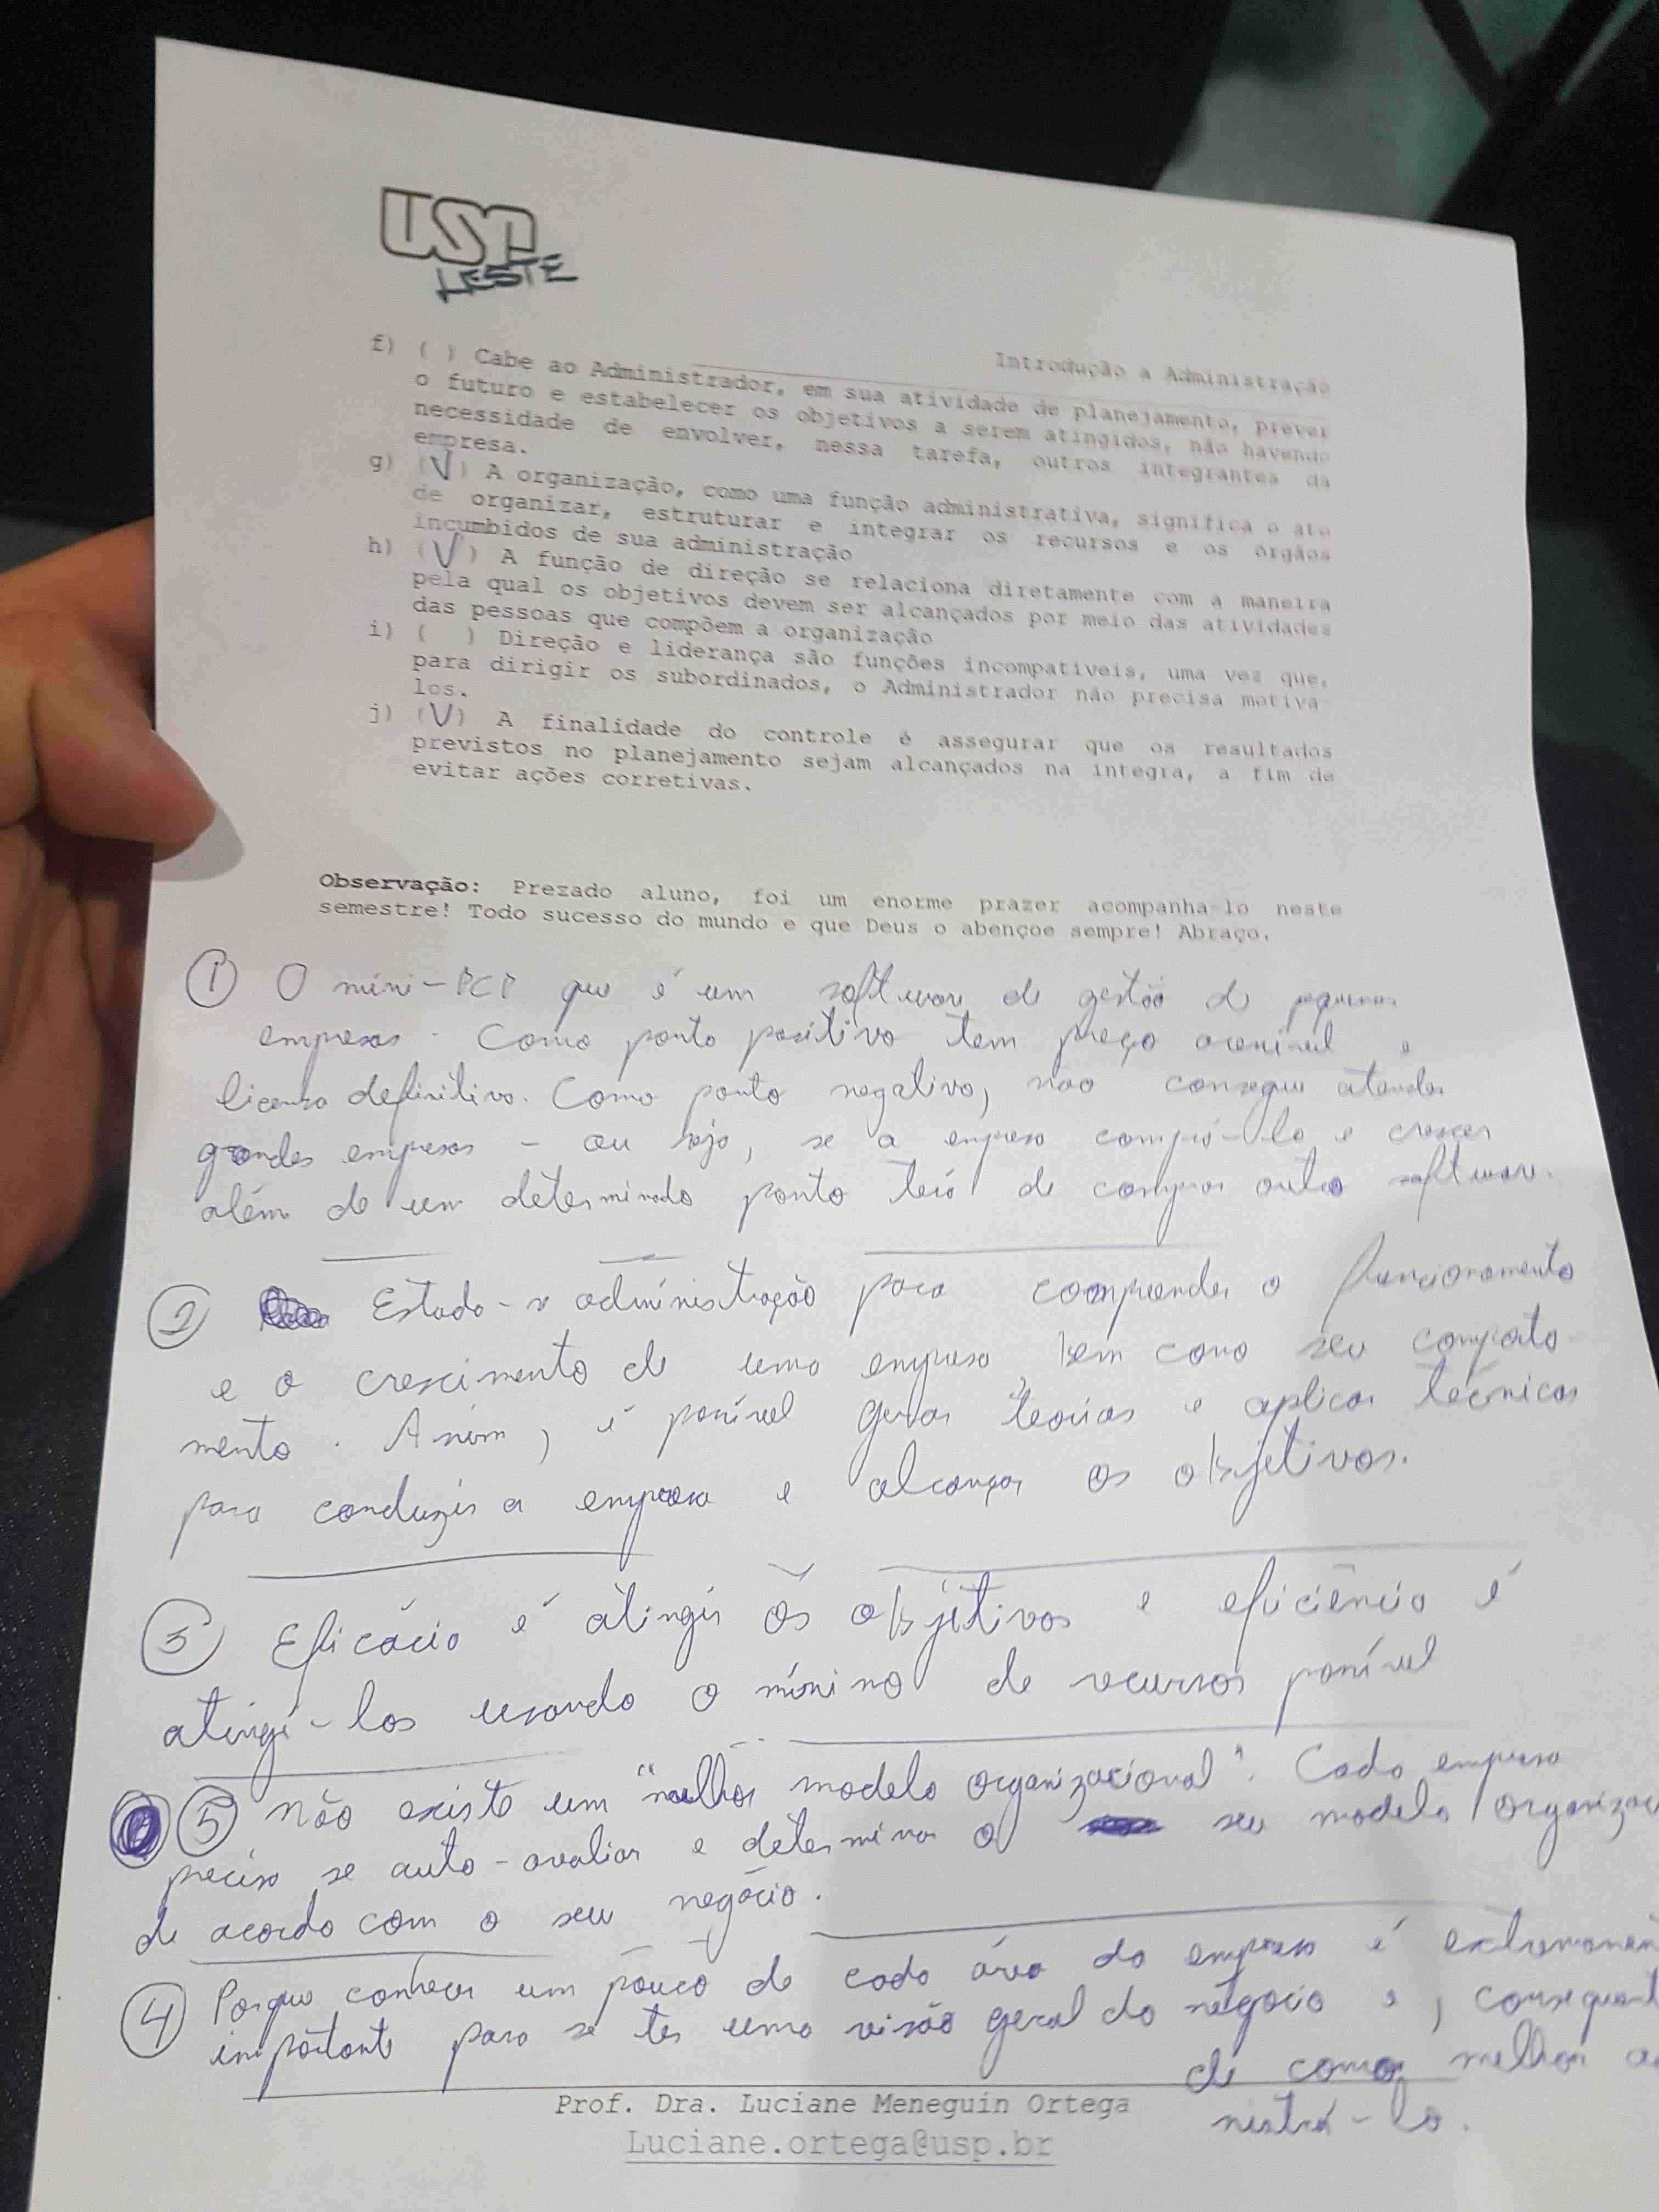 USP
LESTE
Introdução a Administração
f) ( ) Cabe ao Administrador, em sua atividade de planejamento, prever
o futuro e estabelecer os objetivos a serem atingidos, não havendo
necessidade de envolver, nessa tarefa, outros integrantes da
empresa.
g) (V) A organização, como uma função administrativa, significa o ato
de organizar, estruturar e integrar os recursos e os órgãos
incumbidos de sua administração
h) (V) A função de direção se relaciona diretamente com a maneira
pela qual os objetivos devem ser alcançados por meio das atividades
das pessoas que compõem a organização
i) ( ) Direção e liderança são funções incompatíveis, uma vez que,
para dirigir os subordinados, o Administrador não precisa motivá-
los.
j) (V) A finalidade do controle é assegurar que os resultados
previstos no planejamento sejam alcançados na íntegra, a fim de
evitar ações corretivas.
Observação: Prezado aluno, foi um enorme prazer acompanha-lo neste
semestre! Todo sucesso do mundo e que Deus o abençoe sempre! Abraço.
1 O mini-PCP que é um software de gestão de pequenas
empresas. Como ponto positivo tem preço acessível e
licença definitiva. Como ponto negativo, não consegue atender
grandes empresas - ou seja, se a empresa comprá-lo e crescer
além de um determinado ponto terá de comprar outro software.
2 Estuda-se administração para compreender o funcionamento
e o crescimento de uma empresa, bem como seu comporta-
mento. Assim, é possível gerar teorias e aplicar técnicas
para conduzir a empresa e alcançar os objetivos.
3 Eficácia é atingir os objetivos e eficiência é
atingí-los usando o mínimo de recursos possível
5 Não existe um "melhor modelo organizacional". Cada empresa
precisa se auto-avaliar e determinar o seu modelo organizac
de acordo com o seu negócio.
4 Porque conhecer um pouco de cada área da empresa é extremamen
importante para se ter uma visão geral do negócio e, consequent
de como melhor a
nistrá-lo.
Prof. Dra. Luciane Meneguin Ortega
Luciane.ortega@usp.br